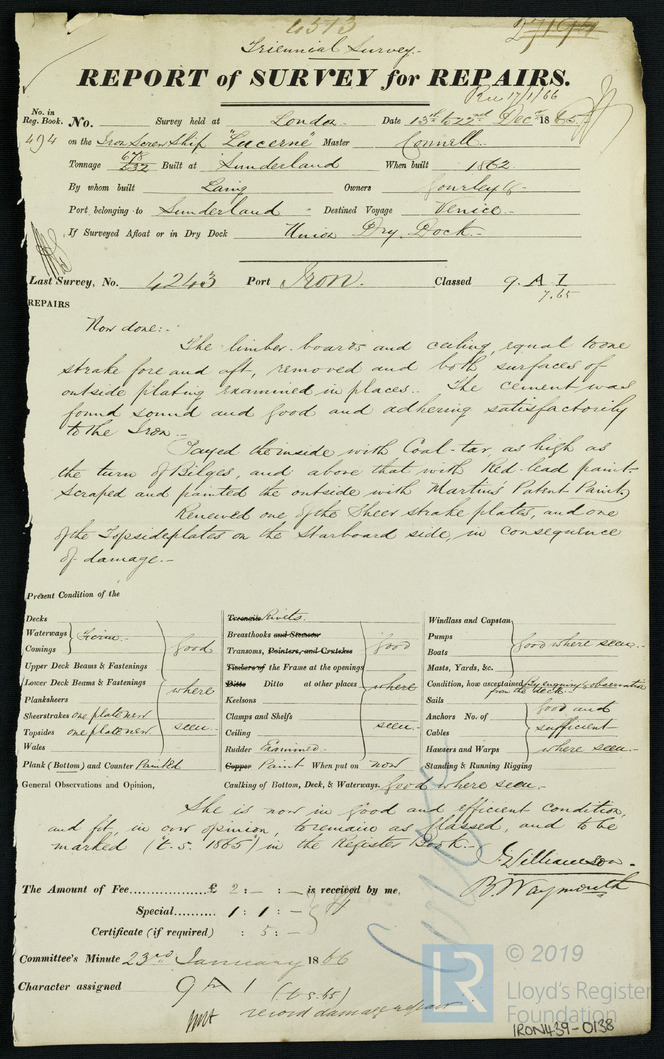 6573
27194
Triennial Survey.
REPORT of SURVEY for REPAIRS.
Rec 17/1/66
No. in Reg. Book. No. Survey held at London Date 13th to 22nd Decr 1865
494 on the Iron Screw Ship "Lucerne" Master Connell
Tonnage 678 532 Built at Sunderland When built 1862
By whom built Laing Owners Gourley &
Port belonging to Sunderland Destined Voyage Venice
If Surveyed Afloat or in Dry Dock Union Dry Dock
Last Survey, No. 4243 Port Iron. Classed 9. A 1
7.65
REPAIRS
Now done:-
The limber-boards and ceiling, equal to one
strake fore and aft, removed and both surfaces of
outside plating examined in places. The cement was
found sound and good and adhering satisfactorily
to the Iron.-
Payed the inside with Coal-tar, as high as
the turn of Bilges, and above that with Red-lead paint.
Scraped and painted the outside with Martin's Patent Paint,
Renewed one of the Sheer strake plates, and one
of the Topside plates on the Starboard side, in consequence
of damage.-
Present Condition of the
Decks
Waterways
Comings
Firm
Upper Deck Beams & Fastenings
Lower Deck Beams & Fastenings
Planksheers
Sheerstrakes one plate new
Topsides one plate new
Wales
good
where
seen.
Plank (Bottom) and Counter Painted
Treenails Rivets.
Breasthooks and Stemson
Transoms, Pointers, and Crutches
Timbers of the Frame at the openings
Ditto Ditto at other places
Keelsons
Clamps and Shelfs
Ceiling
Rudder Examined
good
where
seen.
Copper Paint When put on now
Windlass and Capstan
Pumps
Boats
Masts, Yards, &c.
good where seen.
Condition, how ascertained by enquiry & observation
from the deck.
Sails
Anchors No. of
Cables
Hawsers and Warps
Standing & Running Rigging
good and
sufficient
where seen.
General Observations and Opinion, Caulking of Bottom, Deck, & Waterways. good where seen.
She is now in good and efficient condition,
and fit, in our opinion, to remain as Classed, and to be
marked (t.s. 1865) in the Register Book.-
J. Williamson.
B Waymouth
The Amount of Fee...... £ 2: - : - is received by me,
Special......... 1: 1: -
Certificate (if required) : 5: -
Committee's Minute 23rd January 1866
Character assigned 9 A 1
(t.s.65)
record damage repair
© 2019
LR
Lloyd's Register
Foundation
IRON439-0138